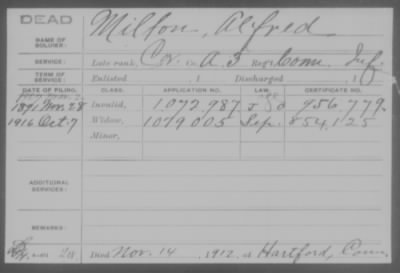 DEAD
Milton, Alfred
NAME OF SOLDIER:
SERVICE: Late rank, Co. A. 5 Reg't Conn. Inf.
TERM OF SERVICE: Enlisted , 1 Discharged , 1
DATE OF FILING. CLASS. APPLICATION NO. LAW. CERTIFICATE NO.
1891 Nov. 28 Invalid, 1.072.987 956.779.
1916 Oct. 7 Widow, 1079005 Sep. 854.125
Minor,
ADDITIONAL SERVICES:
REMARKS:
Died Nov. 14 , 1912, at Hartford, Conn.